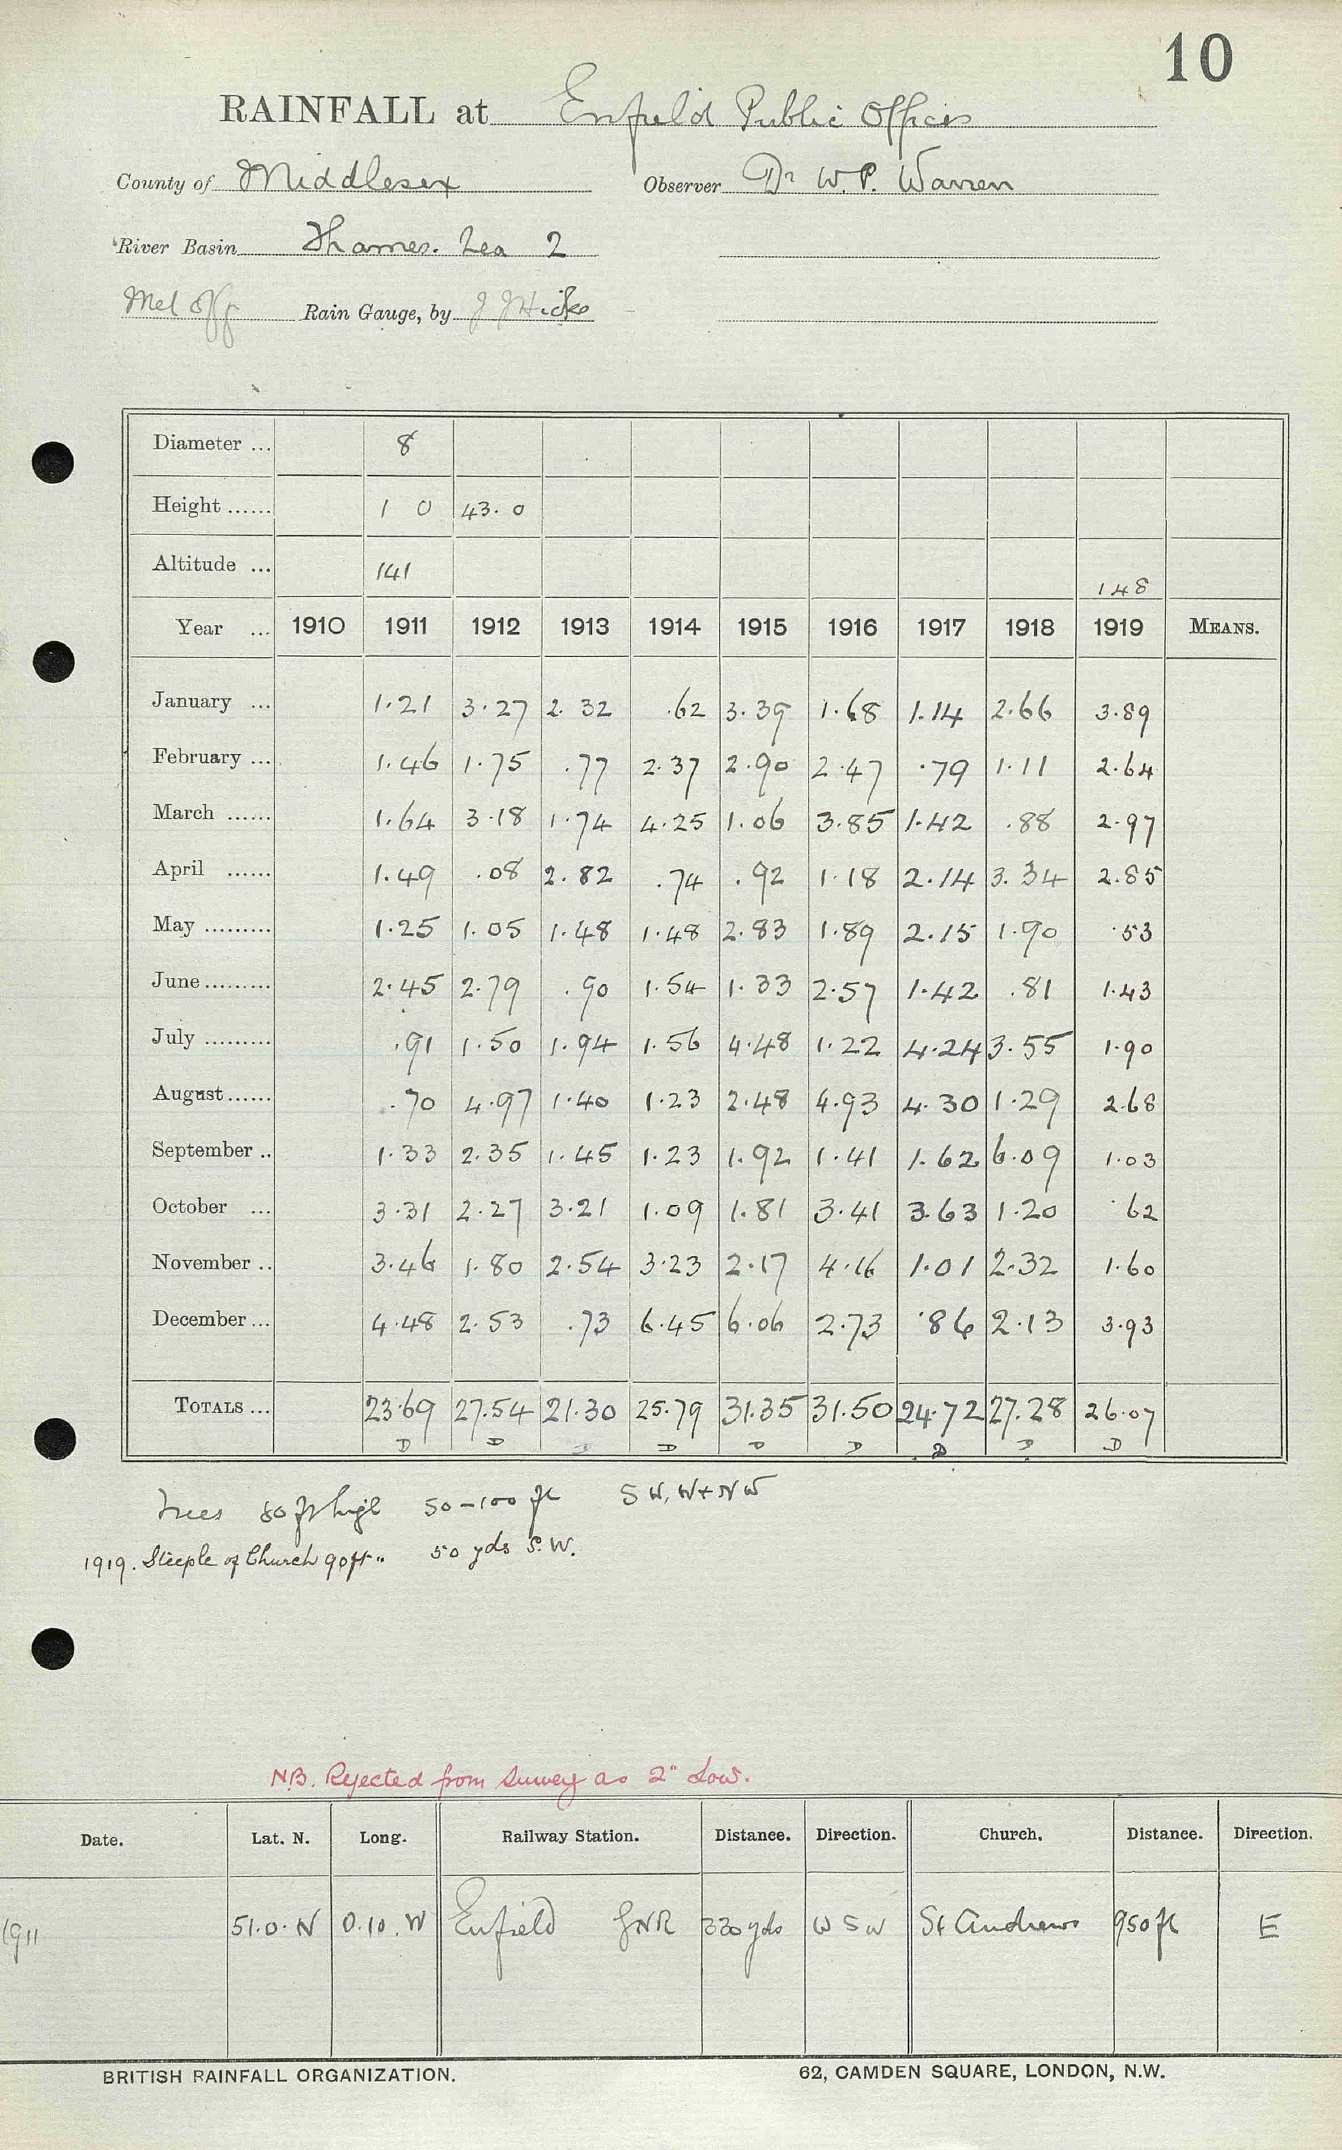 10
RAINFALL at Enfield Public Offices
County of Middlesex Observer Dr W. P. Warren
River Basin Thames. Lea 2
Met Off Rain Gauge, by J J Hicks
Diameter ... 8
Height ...... 1 0 43. 0
Altitude ... 141 148
Year ... 1910 1911 1912 1913 1914 1915 1916 1917 1918 1919 MEANS.
January ... 1.21 3.27 2.32 .62 3.39 1.68 1.14 2.66 3.89
February ... 1.46 1.75 .77 2.37 2.90 2.47 .79 1.11 2.64
March ...... 1.64 3.18 1.74 4.25 1.06 3.85 1.42 .88 2.97
April ...... 1.49 .08 2.82 .74 .92 1.18 2.14 3.34 2.85
May ......... 1.25 1.05 1.48 1.48 2.83 1.89 2.15 1.90 .53
June ......... 2.45 2.79 .90 1.54 1.33 2.57 1.42 .81 1.43
July ......... .91 1.50 1.94 1.56 4.48 1.22 4.24 3.55 1.90
August ...... .70 4.97 1.40 1.23 2.48 4.93 4.30 1.29 2.68
September .. 1.33 2.35 1.45 1.23 1.92 1.41 1.62 6.09 1.03
October ... 3.31 2.27 3.21 1.09 1.81 3.41 3.63 1.20 .62
November .. 3.46 1.80 2.54 3.23 2.17 4.16 1.01 2.32 1.60
December ... 4.48 2.53 .73 6.45 6.06 2.73 .86 2.13 3.93
TOTALS ... 23.69 27.54 21.30 25.79 31.35 31.50 24.72 27.28 26.07
D D D D D D D D D
Trees 80 ft high 50-100 ft SW, W + NW
1919. Steeple of Church 90ft " 50 yds S.W.
N.B. Rejected from Survey as 2" Low.
Date. Lat. N. Long. Railway Station. Distance. Direction. Church. Distance. Direction.
1911 51.0.N 0.10.W Enfield GNR 330 yds W S W St Andrews 950 ft E
BRITISH RAINFALL ORGANIZATION. 62, CAMDEN SQUARE, LONDON, N.W.